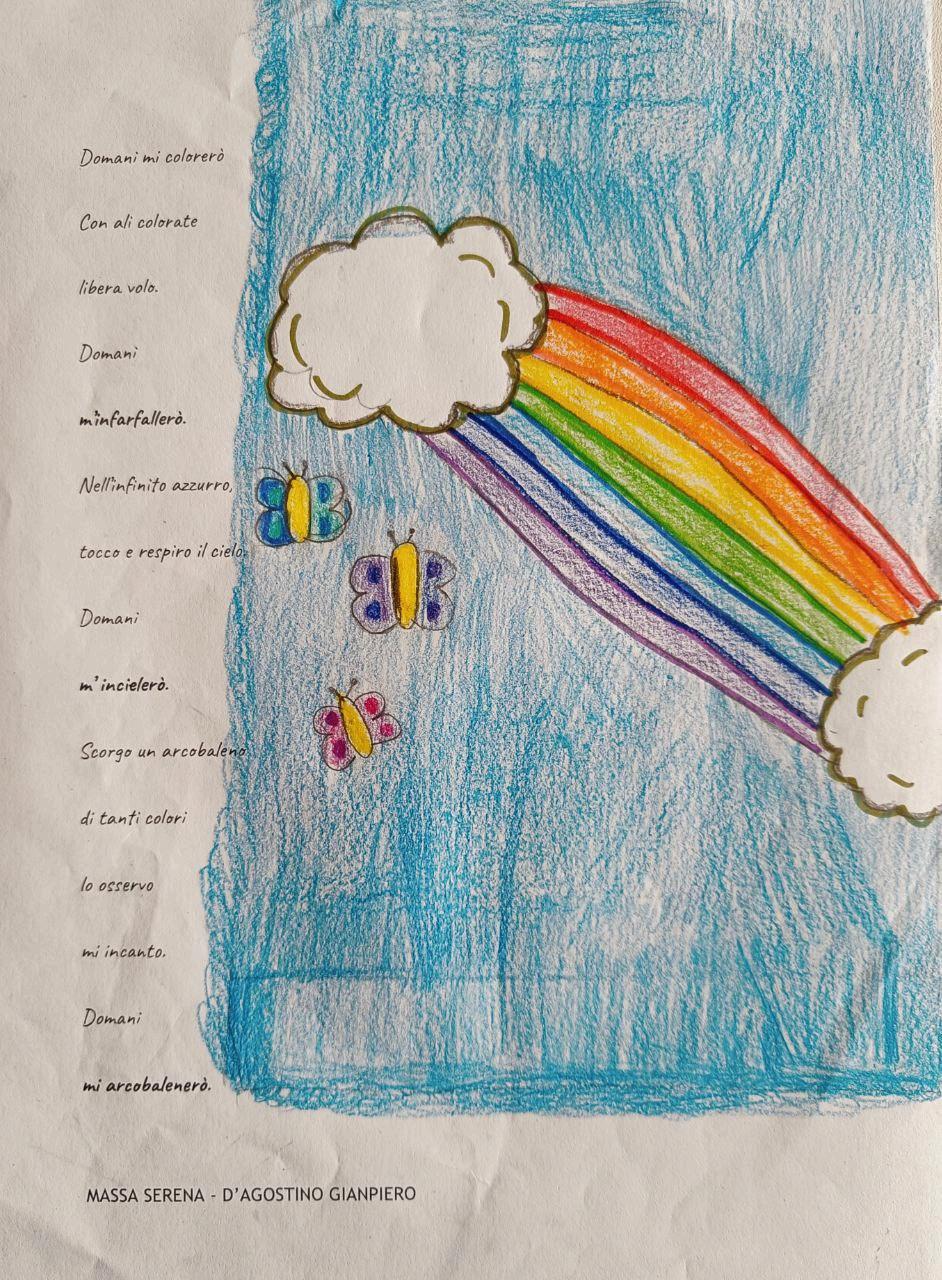 Domani mi colorerò
Con ali colorate
libera volo.
Domani
m'infarfallerò.
Nell'infinito azzurro,
tocco e respiro il cielo.
Domani
m'incielerò.
Scorgo un arcobaleno
di tanti colori
lo osservo
mi incanto.
Domani
mi arcobalenerò.
MASSA SERENA - D'AGOSTINO GIANPIERO